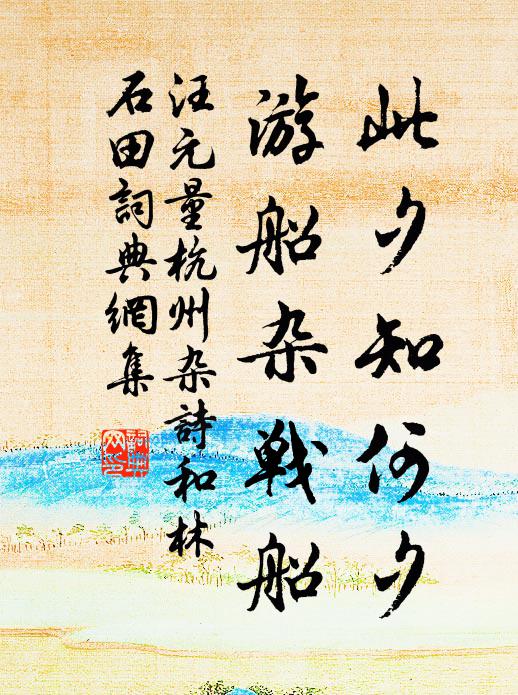 此夕知何夕
游船杂戦船
汪元量杭州杂詩和林
石田詞典網集